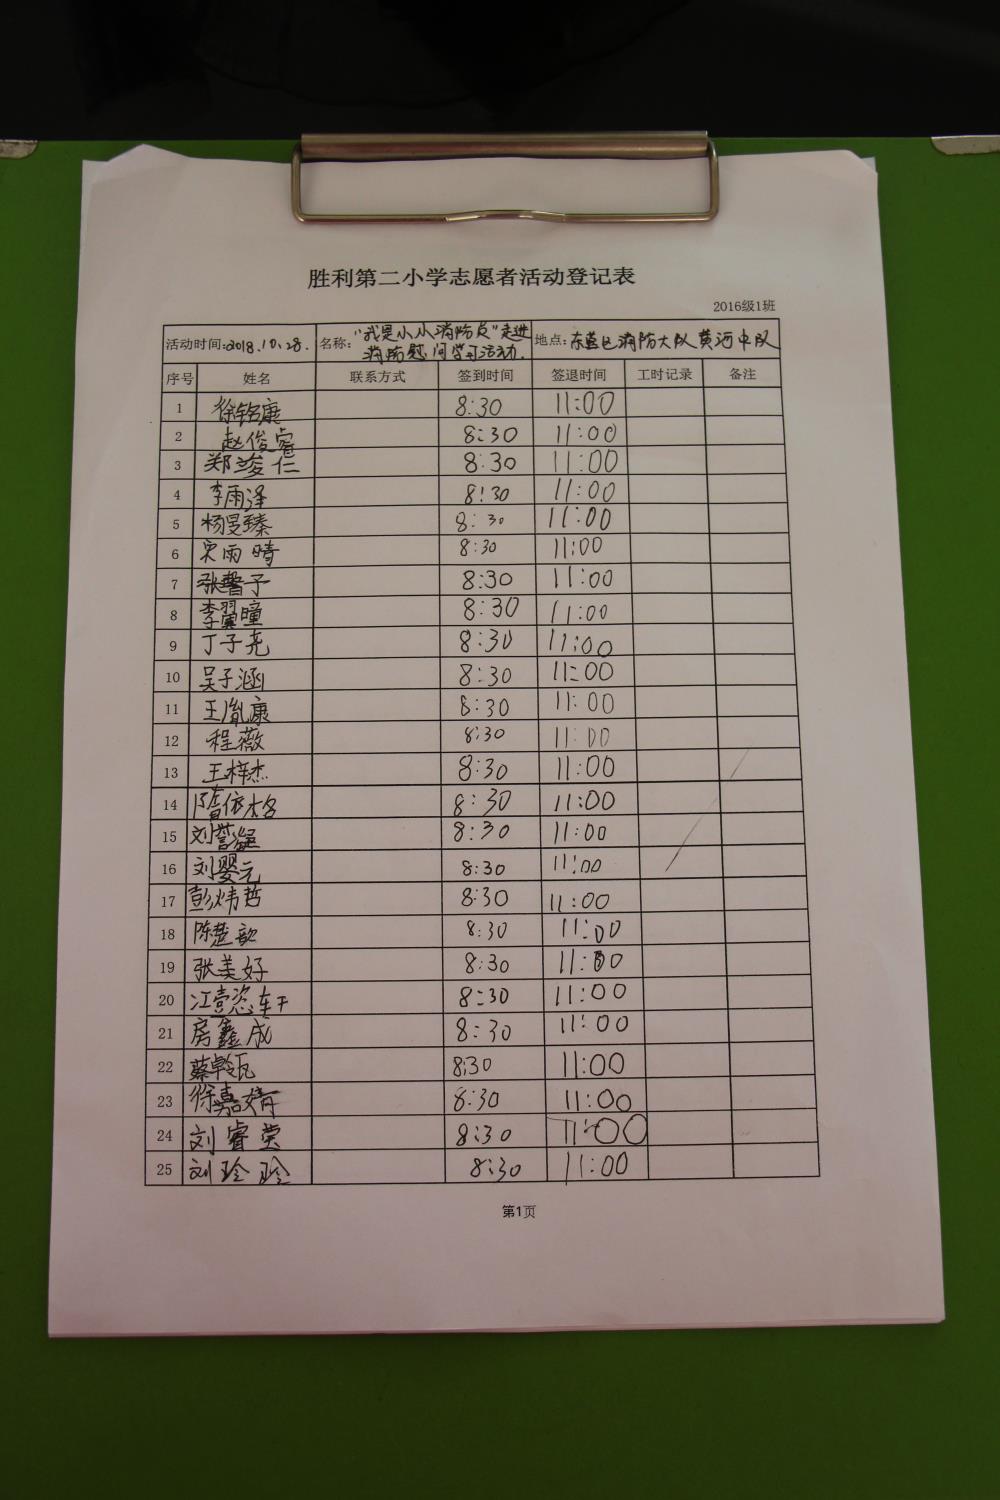 胜利第二小学志愿者活动登记表
2016级1班
活动时间:2018.10.28. 名称:"我是小小消防员"走进消防慰问学习活动. 地点:东营区消防大队黄河中队
序号 姓名 联系方式 签到时间 签退时间 工时记录 备注
1 徐铭康 8:30 11:00
2 赵俊睿 8:30 11:00
3 郑浚仁 8:30 11:00
4 李雨泽 8:30 11:00
5 杨旻臻 8:30 11:00
6 雨晴 8:30 11:00
7 张馨予 8:30 11:00
8 李翼曈 8:30 11:00
9 丁子尧 8:30 11:00
10 吴子涵 8:30 11:00
11 王胤康 8:30 11:00
12 程薇 8:30 11:00
13 王梓杰 8:30 11:00
14 隋依格 8:30 11:00
15 刘 8:30 11:00
16 刘婴元 8:30 11:00
17 彭炜哲 8:30 11:00
18 陈楚歆 8:30 11:00
19 张美好 8:30 11:00
20 江壹恣轩 8:30 11:00
21 房鑫成 8:30 11:00
22 蔡 8:30 11:00
23 徐嘉婧 8:30 11:00
24 刘睿莹 8:30 11:00
25 刘玲玲 8:30 11:00
第1页